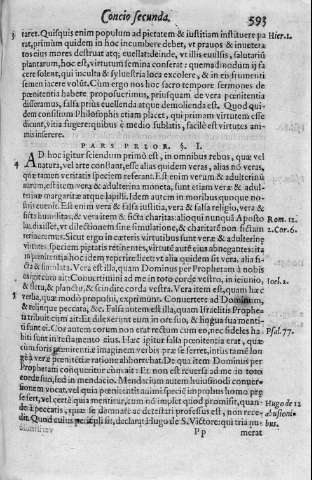 Concio secunda. 593
taret. Quisquis enim populum ad pietatem & iustitiam instituere pa Hier.1.
rat, primùm quidem in hoc incumbere debet, vt prauos & inuetera
tos eius mores destruat atq; euellat: deinde, vt illis euulsis, salutariũ
plantarum, hoc est, virtutum semina conserat: quemadmodum ij fa
cere solent, qui inculta & syluestria loca excolere, & in eis frumenti
semen iacere volũt. Cum ergo nos hoc sacro tempore sermones de
pœnitentia habere proposuerimus, priusquam de vera pœnitentia
disseramus, falsa prius euellenda atque demolienda est. Quod qui-
dem consilium Philosophis etiam placet, qui primam virtutem esse
dicunt, vitia fugere: quibus è medio sublatis, facilè est virtutes ani-
mis inserere.
PARS PRIOR. §. I.
AD hoc igitur sciendum primò est, in omnibus rebus, quæ vel
natura, vel arte constant, esse alias quidem veras, alias nõ veras,
quæ tamen veritatis speciem referant. Est enim verum & adulterinũ
aurum, est item vera & adulterina moneta, sunt etiam veræ & adul-
terinæ margaritæ atque lapilli. Idem autem in moribus quoque no-
stris cernit. Est enim vera & falsa iustitia, vera & falsa religio, vera &
ficta humilitas, & vera item & ficta charitas: alioqui nunquã Aposto Rom. 12.
lus dixisset, vt dilectionem sine simulatione, & charitatē non fictam 2. Cor. 6.
retineamus. Sicut ergo in cæteris virtutibus sunt veræ & adulterinę
virtutes speciem pietatis retinentes, virtutē autē eius abnegantes: ita
in pœnitentia hoc idem reperire licet: vt alia quidem sit vera, alia fi-
cta & simulata. Vera est illa, quam Dominus per Prophetam à nobis
exigit cum ait: Conuertimini ad me in toto corde vestro, in ieiunio, Ioel. 2.
& fletu, & planctu, & scindite corda vestra. Vera item est, quam hæc
verba, quæ modò proposui, exprimunt. Conuertere ad Dominum,
& relinque peccata, &c. Falsa autem est illa, quam Israelitis Prophe-
ta tribuit cùm ait: Et dilexerunt eum in ore suo, & lingua sua menti-
ti sunt ei. Cor autem eorum non erat rectum cum eo, nec fideles ha- Psal. 77.
biti sunt in testamento eius. Hæc igitur falsa pœnitentia erat, quæ
cum foris pœnitentiæ imaginem verbis præ se ferret, intus tamē lon
gè à veræ pœnitentiæ ratione abhorrebat. De qua item Dominus per
Prophetam conqueritur cùm ait: Et non est reuersa ad me in toto
corde suo, sed in mendacio. Mendacium autem huiusmodi conuer-
sionem vocat, vel quia pœnitentis animi specie improbus homo præ
se fert, vel certè quia mentitur, cum nõ implet quod promisit, quan- Hugo de 12
do à peccatis, quæ se damnare ac detestari professus est, non rece- abusioni-
dit. Quod cuius periculi sit, declarat Hugo de S. Victore: qui tria nu- bus.
Pp merat